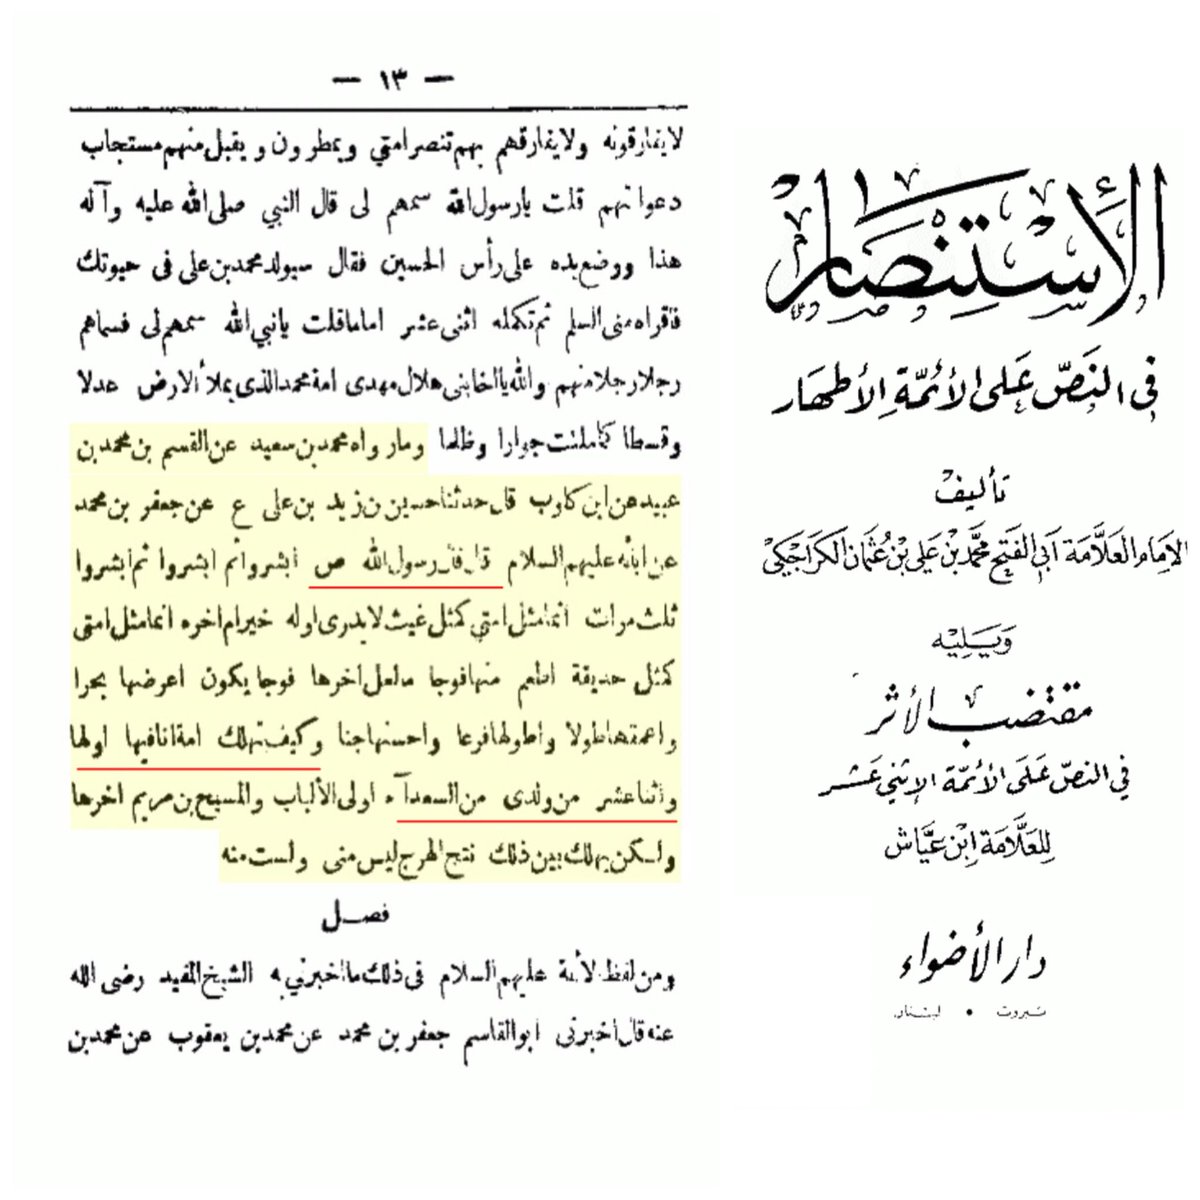 — ١٣ —
لا يفارقونه ولا يفارقهم بهم تنصر امتي وبمطرون ويقبل منهم مستجاب
دعواتهم قلت يا رسول الله سمهم لى قال النبي صلى الله عليه وآله
هذا ووضع يده على رأس الحسين فقال سيولد محمد بن على فى حيوتك
فاقراه منى السلم ثم تكمله اثنى عشر اماما قلت يا نبي الله سمهم لى فسماهم
رجلا رجلا منهم والله يا اخا بنى هلال مهدى امة محمد الذى يملأ الارض عدلا
وقسطا كما ملئت جورا وظلما وما رواه محمد بن سعيد عن القسم بن محمد بن
عبيد عن ابن كاوب قال حدثنا حسين بن زيد بن على ع عن جعفر بن محمد
عن ابائه عليهم السلام قال قال رسول الله ص ابشروا ثم ابشروا ثم ابشروا
ثلث مرات انما مثل امتي كمثل غيث لا يدرى اوله خير ام اخره انما مثل امتى
كمثل حديقة اطعم منها فوجا ما لعل اخرها فوجا يكون اعرضها بحرا
واعمقها طولا واطولها فرعا واحسنها جنا وكيف تهلك امة انا فيها اولها
واثنا عشر من ولدى من السعدآء اولى الألباب والمسيح بن مريم اخرها
ولكن يهلك بين ذلك نتج الهرج ليس منى ولست منه
فصل
ومن لفظ لأئمة عليهم السلام فى ذلك ما اخبرني به الشيخ المفيد رضى الله
عنه قال اخبرنى ابو القاسم جعفر بن محمد عن محمد بن يعقوب عن محمد بن
الإستنصار
فى النص على الأئمة الأطهار
تأليف
الإمام العلامة أبي الفتح محمد بن علي بن عثمان الكراجكي
ويليه
مقتضب الأثر
في النص على الأئمة الإثني عشر
للعلامة ابن عياش
دار الأضواء
بيروت • لبنان